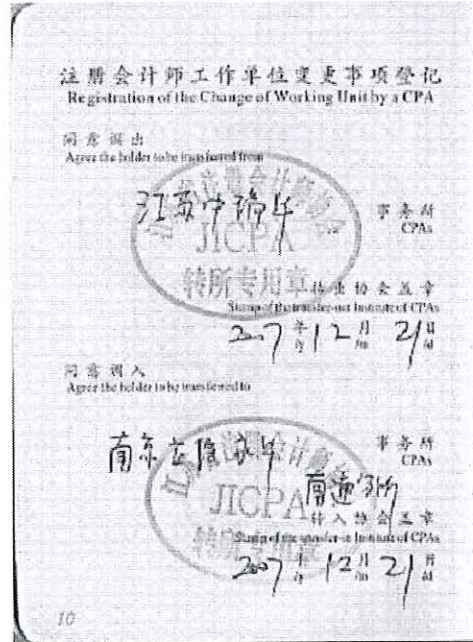 注册会计师工作单位变更事项登记
Registration of the Change of Working Unit by a CPA
同意调出
Agree the holder to be transferred from
江苏中瑞华
事务所
CPAs
JICPA
转所专用章
转出协会盖章
Stamp of the transfer-out Institute of CPAs
2007年12月21日
/y /m /d
同意调入
Agree the holder to be transferred to
南京立信永华
事务所
CPAs
JICPA
南通分所
转所专用章
转入协会盖章
Stamp of the transfer-in Institute of CPAs
2007年12月21日
/y /m /d
10